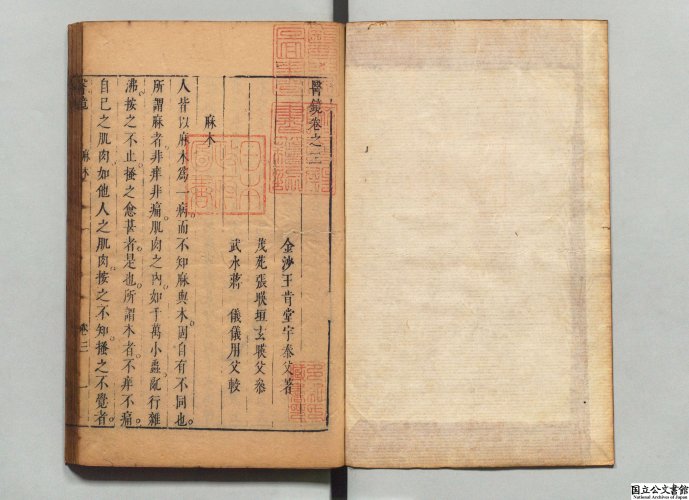 醫鏡卷之三
金沙王肯堂宇泰父著
茂苑張暻垣玄暎父叅
武水蔣 儀儀用父較
麻木
人皆以麻木爲一病而不知麻與木固自有不同也
所謂麻者非痒非痛肌肉之內如千萬小蟲亂行雜
沸按之不止搔之愈甚者是也所謂木者不痒不痛
自己之肌肉如他人之肌肉按之不知搔之不覺者
醫鏡 麻木 卷三 一
国立公文書館
National Archives of Japan